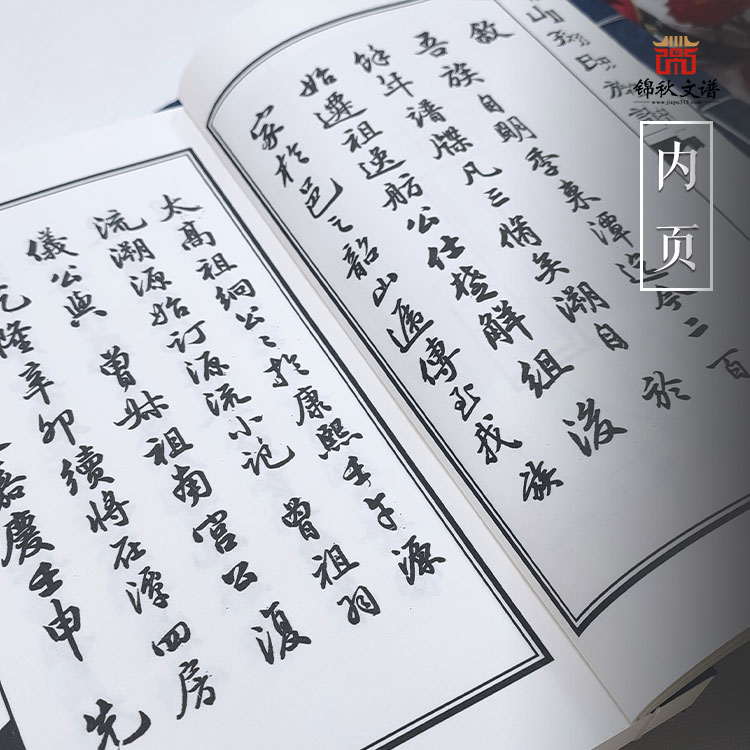 锦秋文谱
www.jiapu715.com
内页
敘
吾族自明季東潭迄今二百
餘年譜牒凡三脩矣溯自於
始遷祖逸舫公仕楚解組後
家於邑之韶山遞傳至我族
太高祖絅公公於康熙壬午源
流溯源始訂源流小記 曾祖羽
儀公與 曾叔祖南宮公復
乾隆辛卯續將在潭四房
嘉慶壬申 先